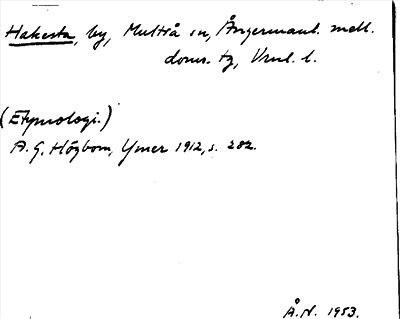 Hakesta, by, Multrå sn, Ångermanl. mell.
doms. tg, Vnrl. l.
(Etymologi.)
A. G. Högbom, Ymer 1912, s. 282.
Å.N. 1953.